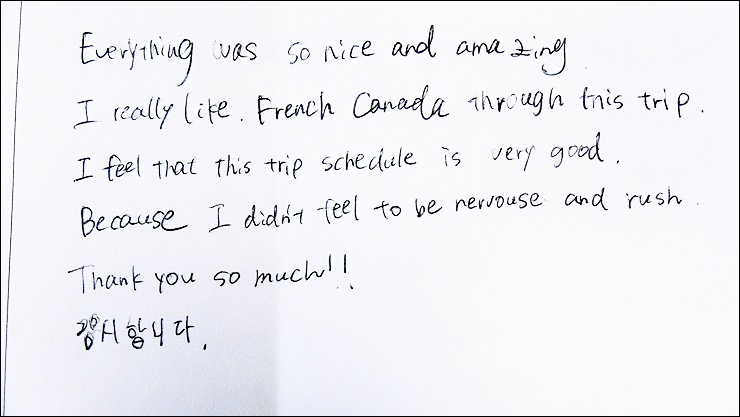 Everything was so nice and amazing
I really like. French Canada through this trip.
I feel that this trip schedule is very good.
Because I didn't feel to be nervouse and rush.
Thank you so much!!
감사합니다.